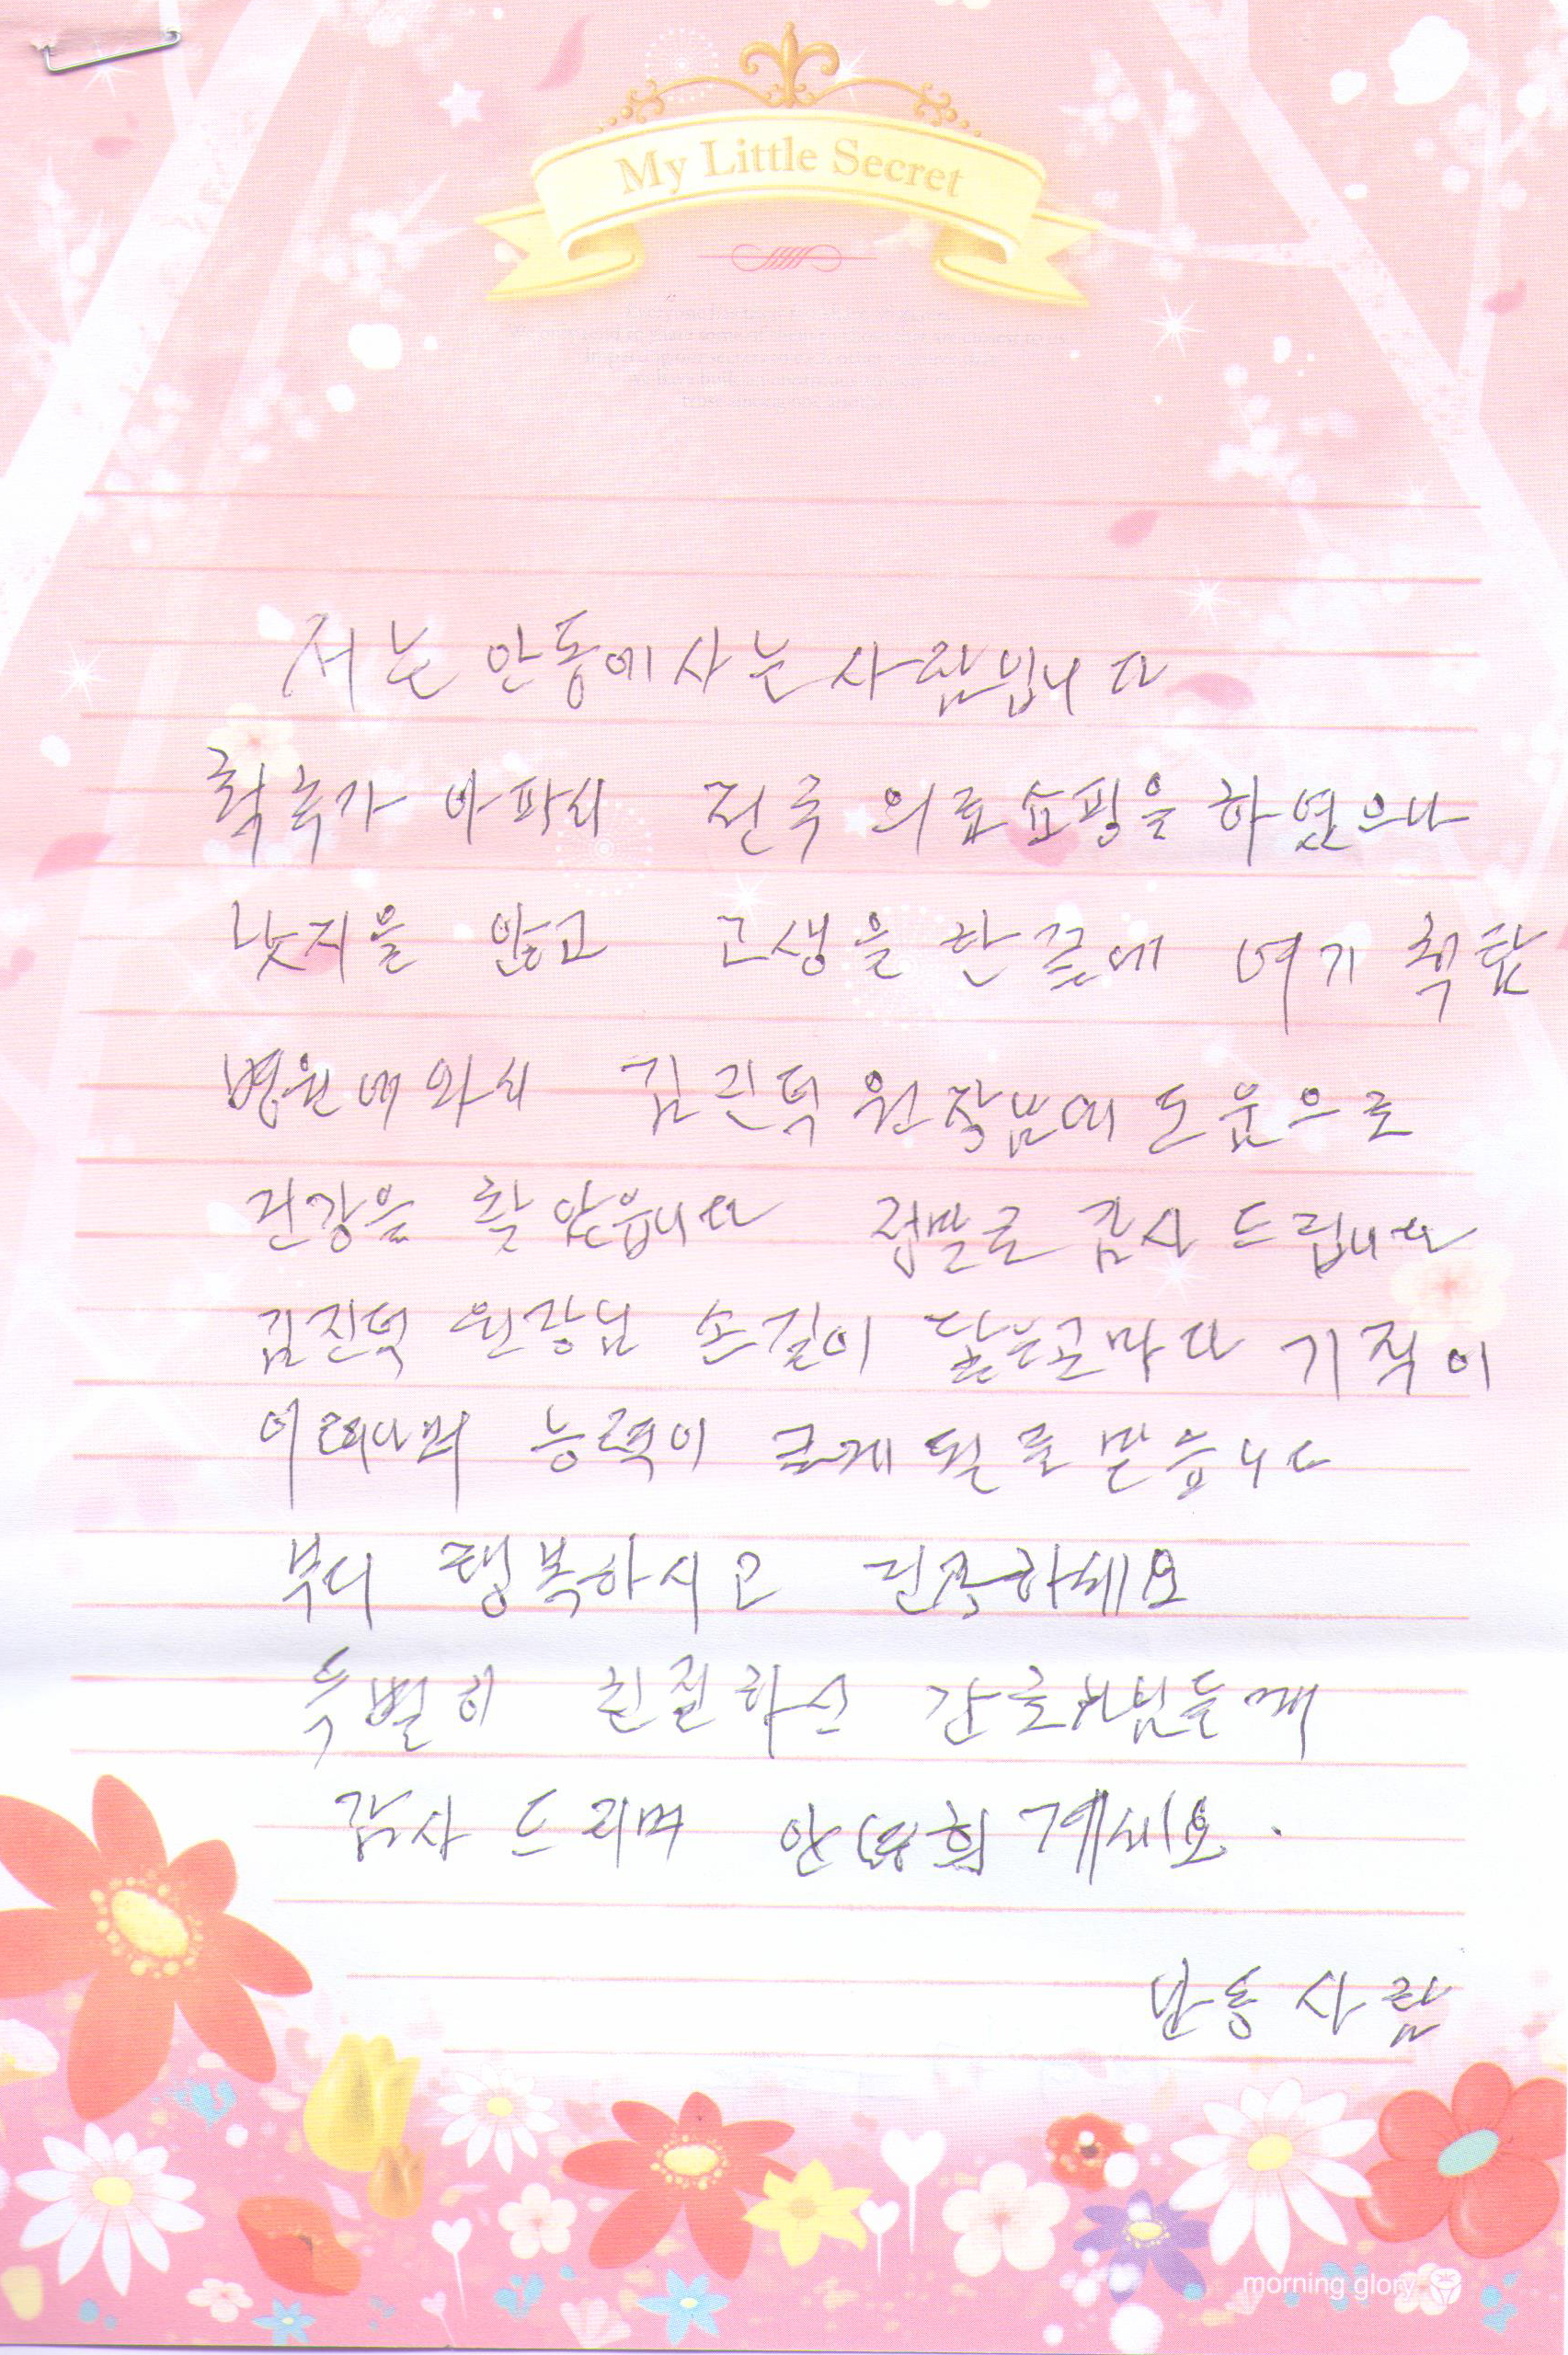 My Little Secret
저는 안동에 사는 사람입니다
척추가 아파서 전국 의료쇼핑을 하였으나
낫지을 않고 고생을 한끝에 여기 척탑
병원에 와서 김진덕 원장님에 도움으로
건강을 찾았읍니다 정말로 감사 드립니다
김진덕 원장님 손길이 닿는곳마다 기적이
이러나며 능력이 크게 될로 믿습니다
부디 행복하시고 건강하세요
특별히 친절하신 간호사님들께
감사 드리며 안녕희 계세요.
안동 사람
morning glory